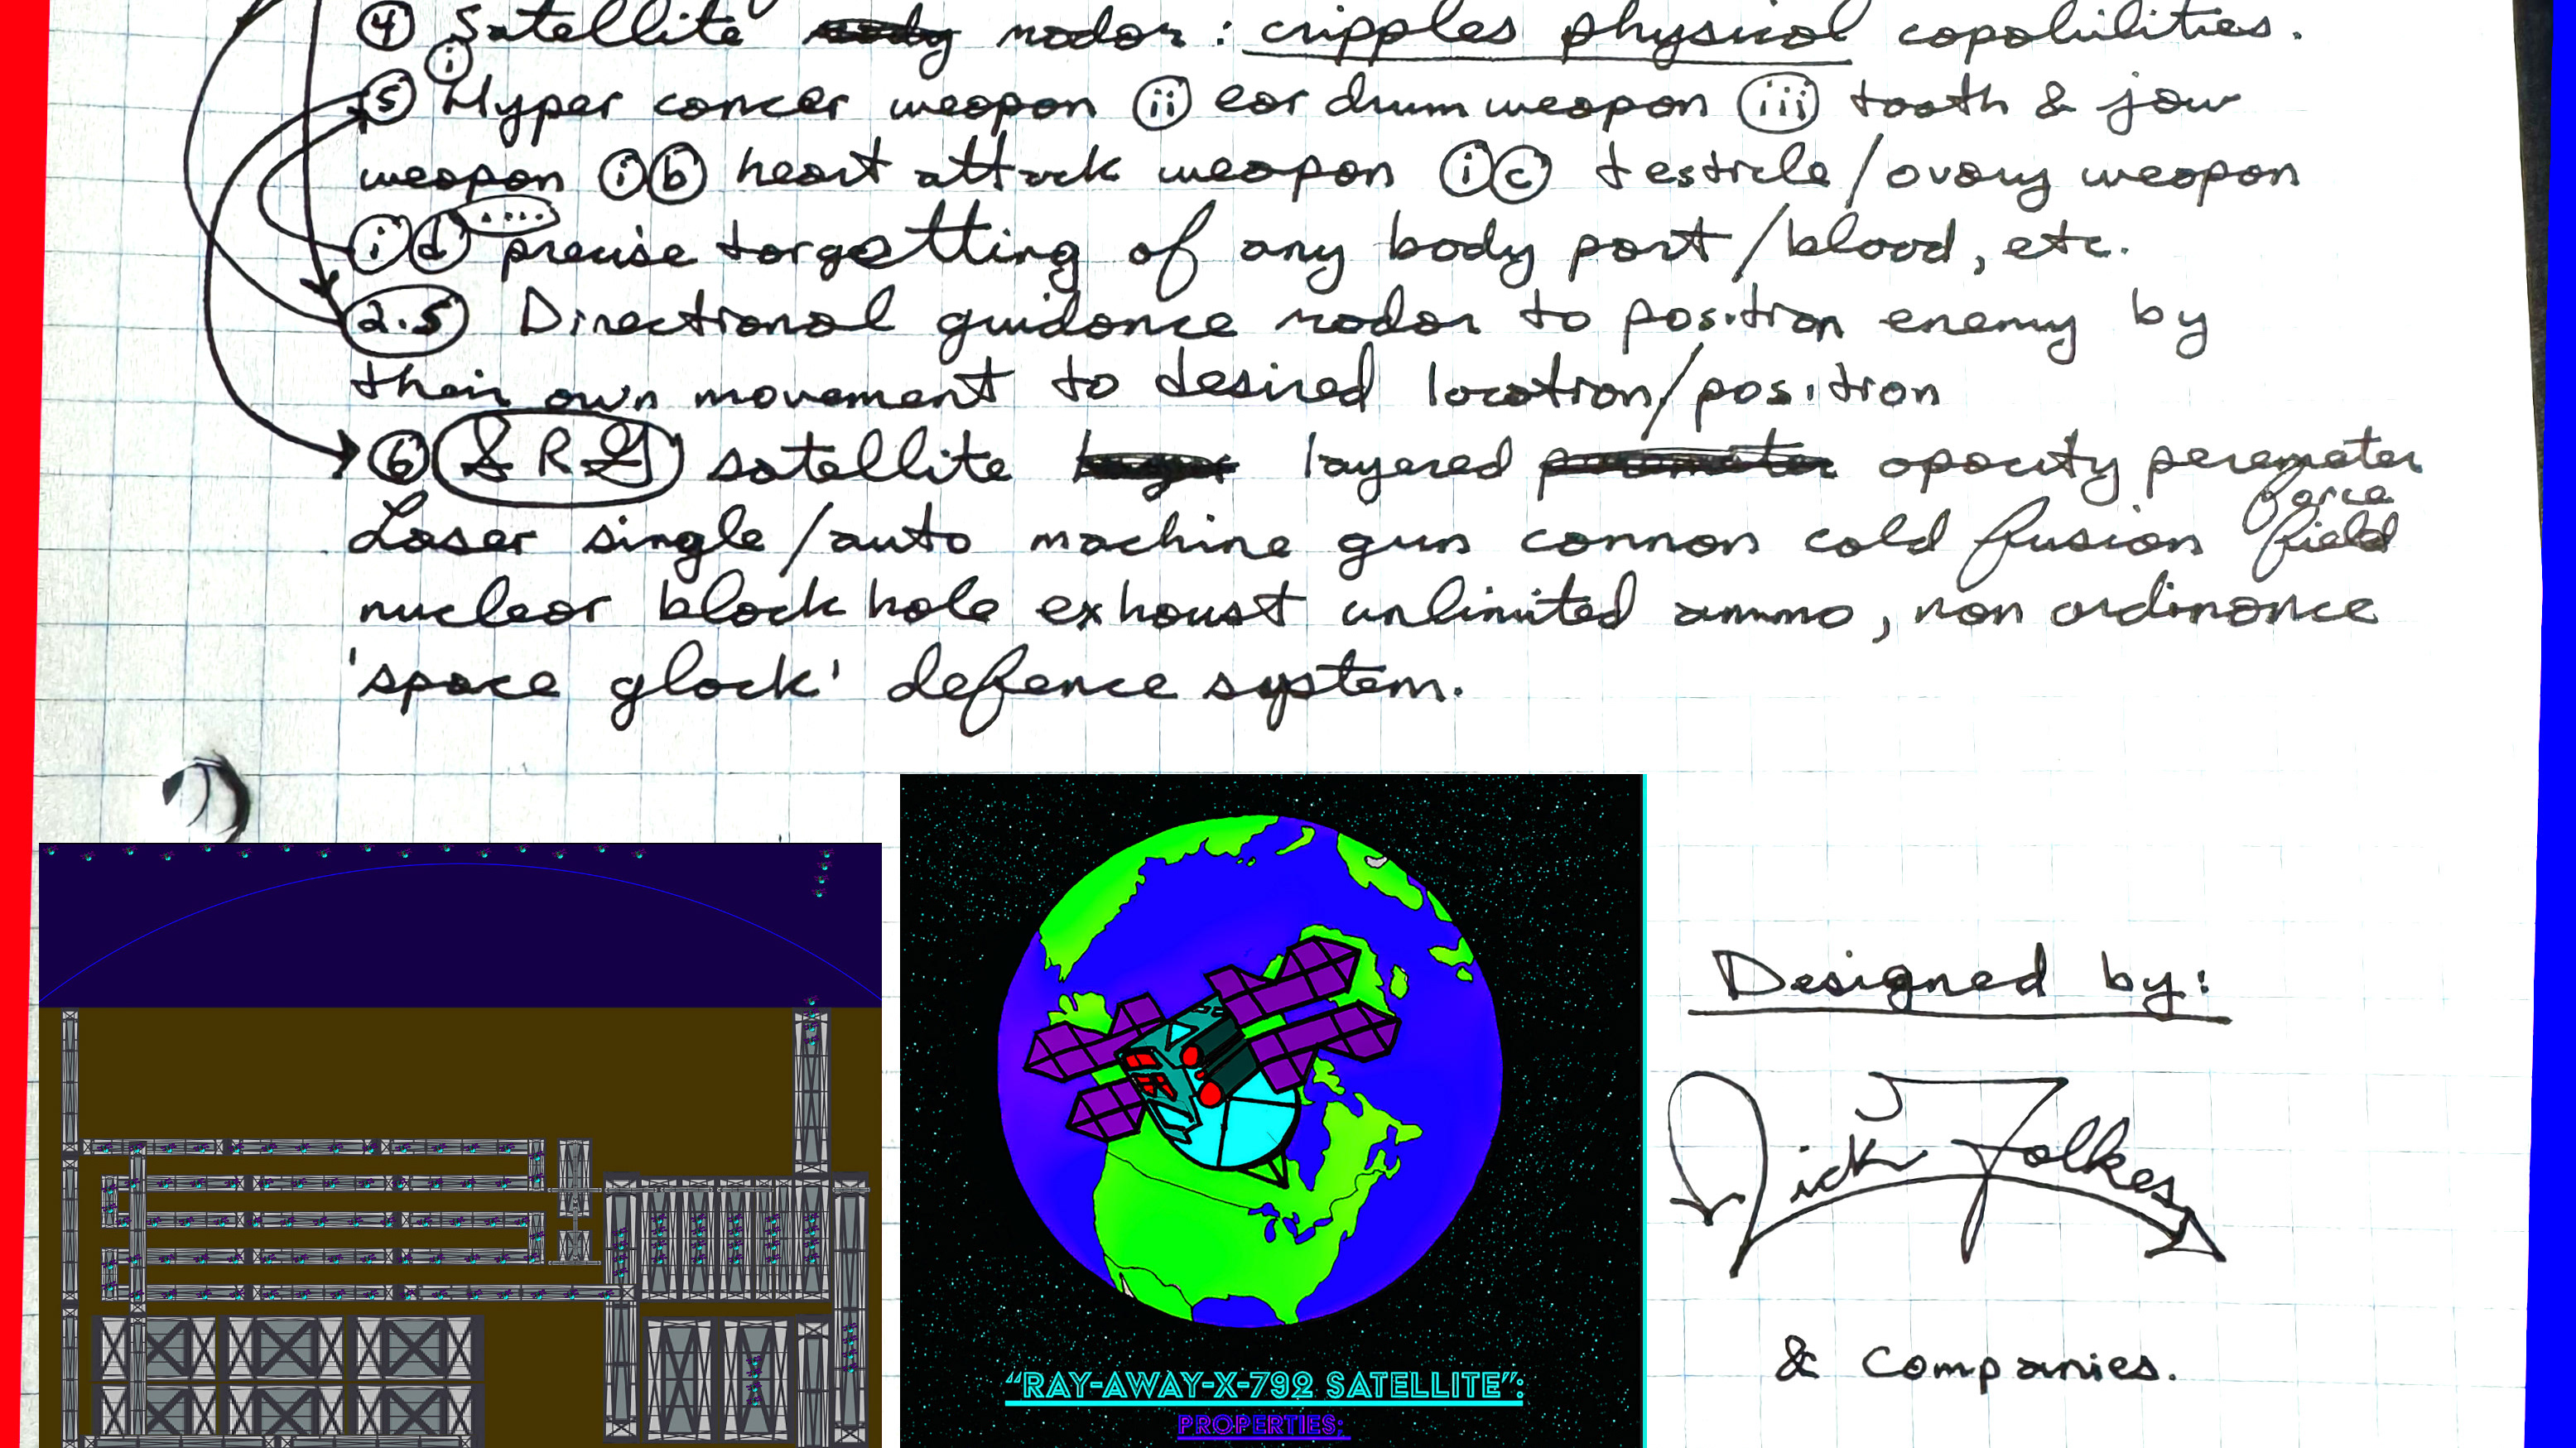 ④ Satellite radar: cripples physical capabilities.
⑤ ⓘ Hyper cancer weapon ⓘⓘ ear drum weapon ⓘⓘⓘ tooth & jaw
weapon ⓘⓑ heart attack weapon ⓘⓒ testicle/ovary weapon
ⓘⓓ .... precise targetting of any body part/blood, etc.
2.5 Directional guidance radar to position enemy by
their own movement to desired location/position
⑥ satellite layered opacity peremeter
Laser single/auto machine gun cannon cold fusion force field
nuclear black hole exhaust unlimited ammo, non ordinance
'space glock' defence system.
Designed by:
Nick Folkes
& Companies.
"RAY-AWAY-X-792 SATELLITE":
PROPERTIES: